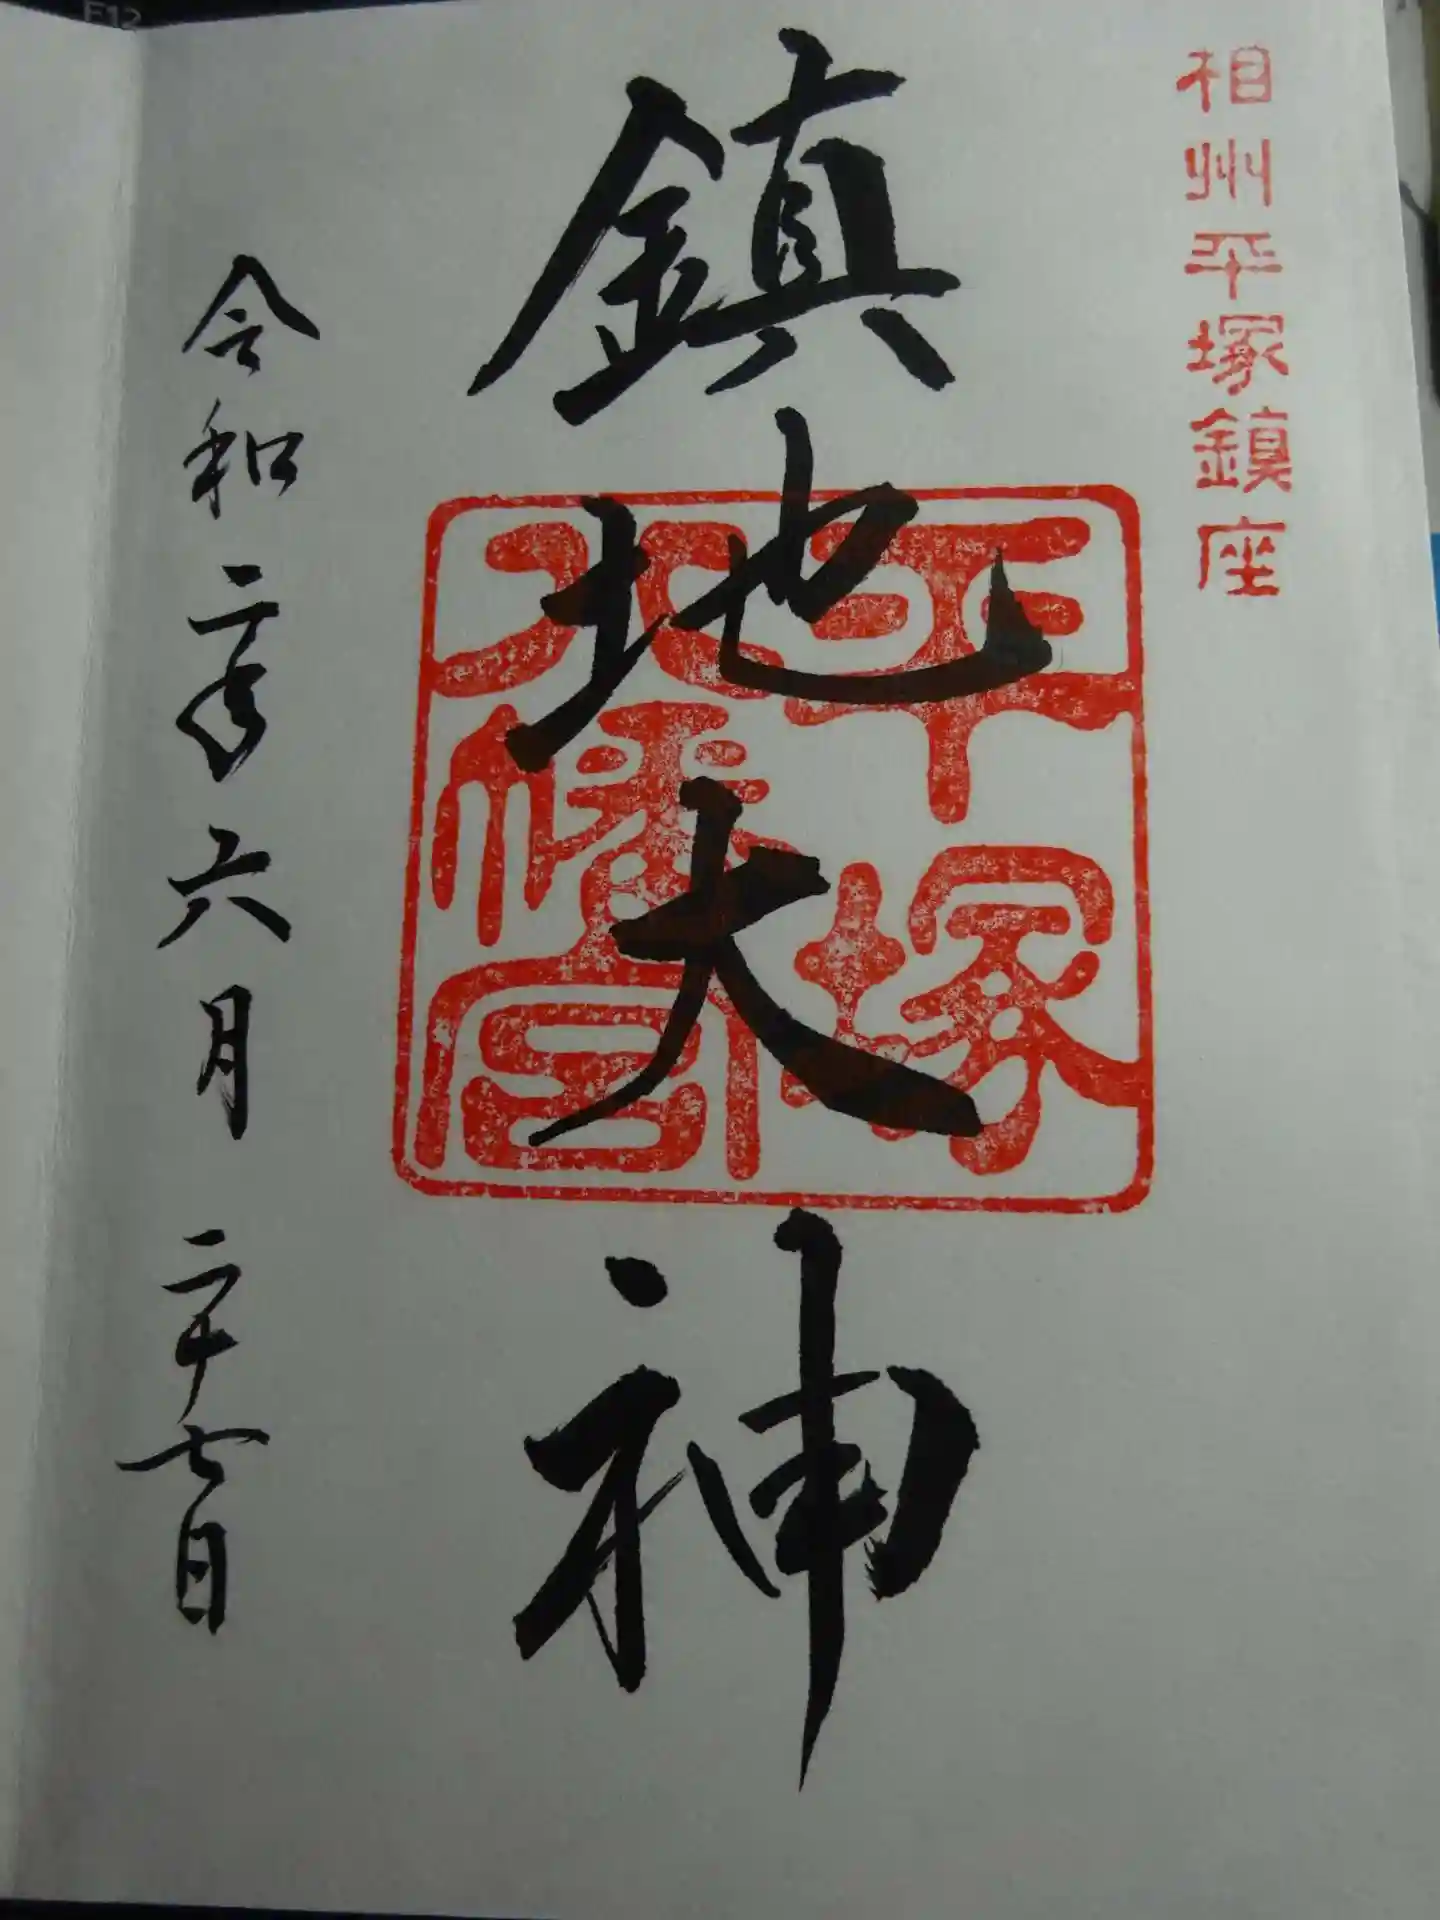 相州平塚鎮座
鎮地大神
平塚
八幡宮
令和二年六月二十七日
F12